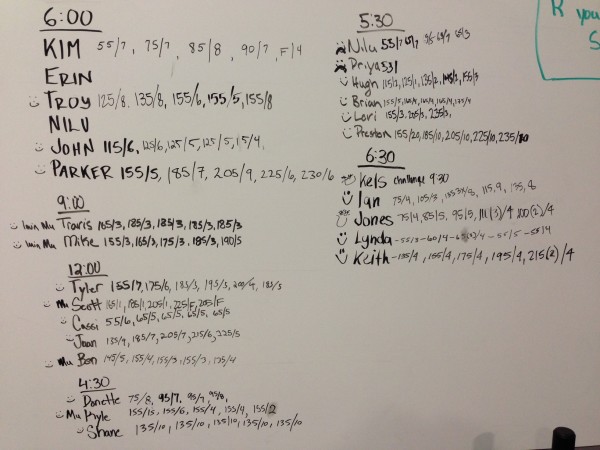 6:00
KIM 55/7, 75/7, 85/8, 90/7, F/4
ERIN
TROY 125/8, 135/8, 155/6, 155/5, 155/8
NILU
JOHN 115/6, 125/6, 125/5, 125/5,
PARKER 155/5, 185/7, 205/9, 225/6, 230/6
9:00
1min Mu Travis 185/3, 185/3, 185/3, 185/3, 185/3
1min Mu Mike 155/3, 165/3, 175/3, 185/3, 190/5
12:00
Tyler 155/7, 175/6, 185/3, 195/3,
Mu Scott 185/1, 205/1, 225/F, 205/F
Cassi 55/6, 65/5, 65/5, 65/5, 65/5
Joan 135/9, 185/7, 205/7, 215/6, 225/5
Mu Ben 145/5, 155/4, 155/3, 155/3, 175/4
4:30
Danette 75/8, 95/7, 95/7, 95/8,
Mu Kyle 155/15, 155/6, 155/4, 155/4, 155/2
Shane 135/10, 135/10, 135/10, 135/10, 135/10
5:30
Nilu 55/7 65/7 65/3
Priya 53/
Hugh 115/3, 125/1, 135/2, 145/3, 155/3
Brian 155/5, 165/4, 165/4, 165/4, 175/4
Lori 155/3, 205/3, 235/3,
Preston 155/20, 185/10, 205/10, 225/10, 235/
6:30
Kels challenge 9:30
Ian 75/9, 105/3, 115/9, 135/8
Jones 75/4, 85/5, 95/5, 111(3)/4, 100(2)/4
Lynda -55/3 -60/4 - -55/5 -55/4
Keith -135/4, 155/4, 175/4, 195/4, 215(2)/4
R you
S